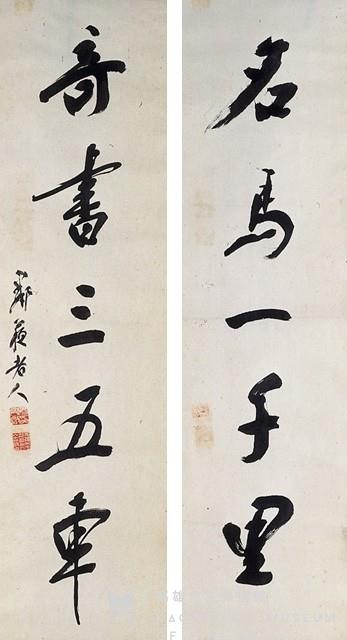 名馬一千里
奇書三五車
鄰蘇老人
MUSEUM